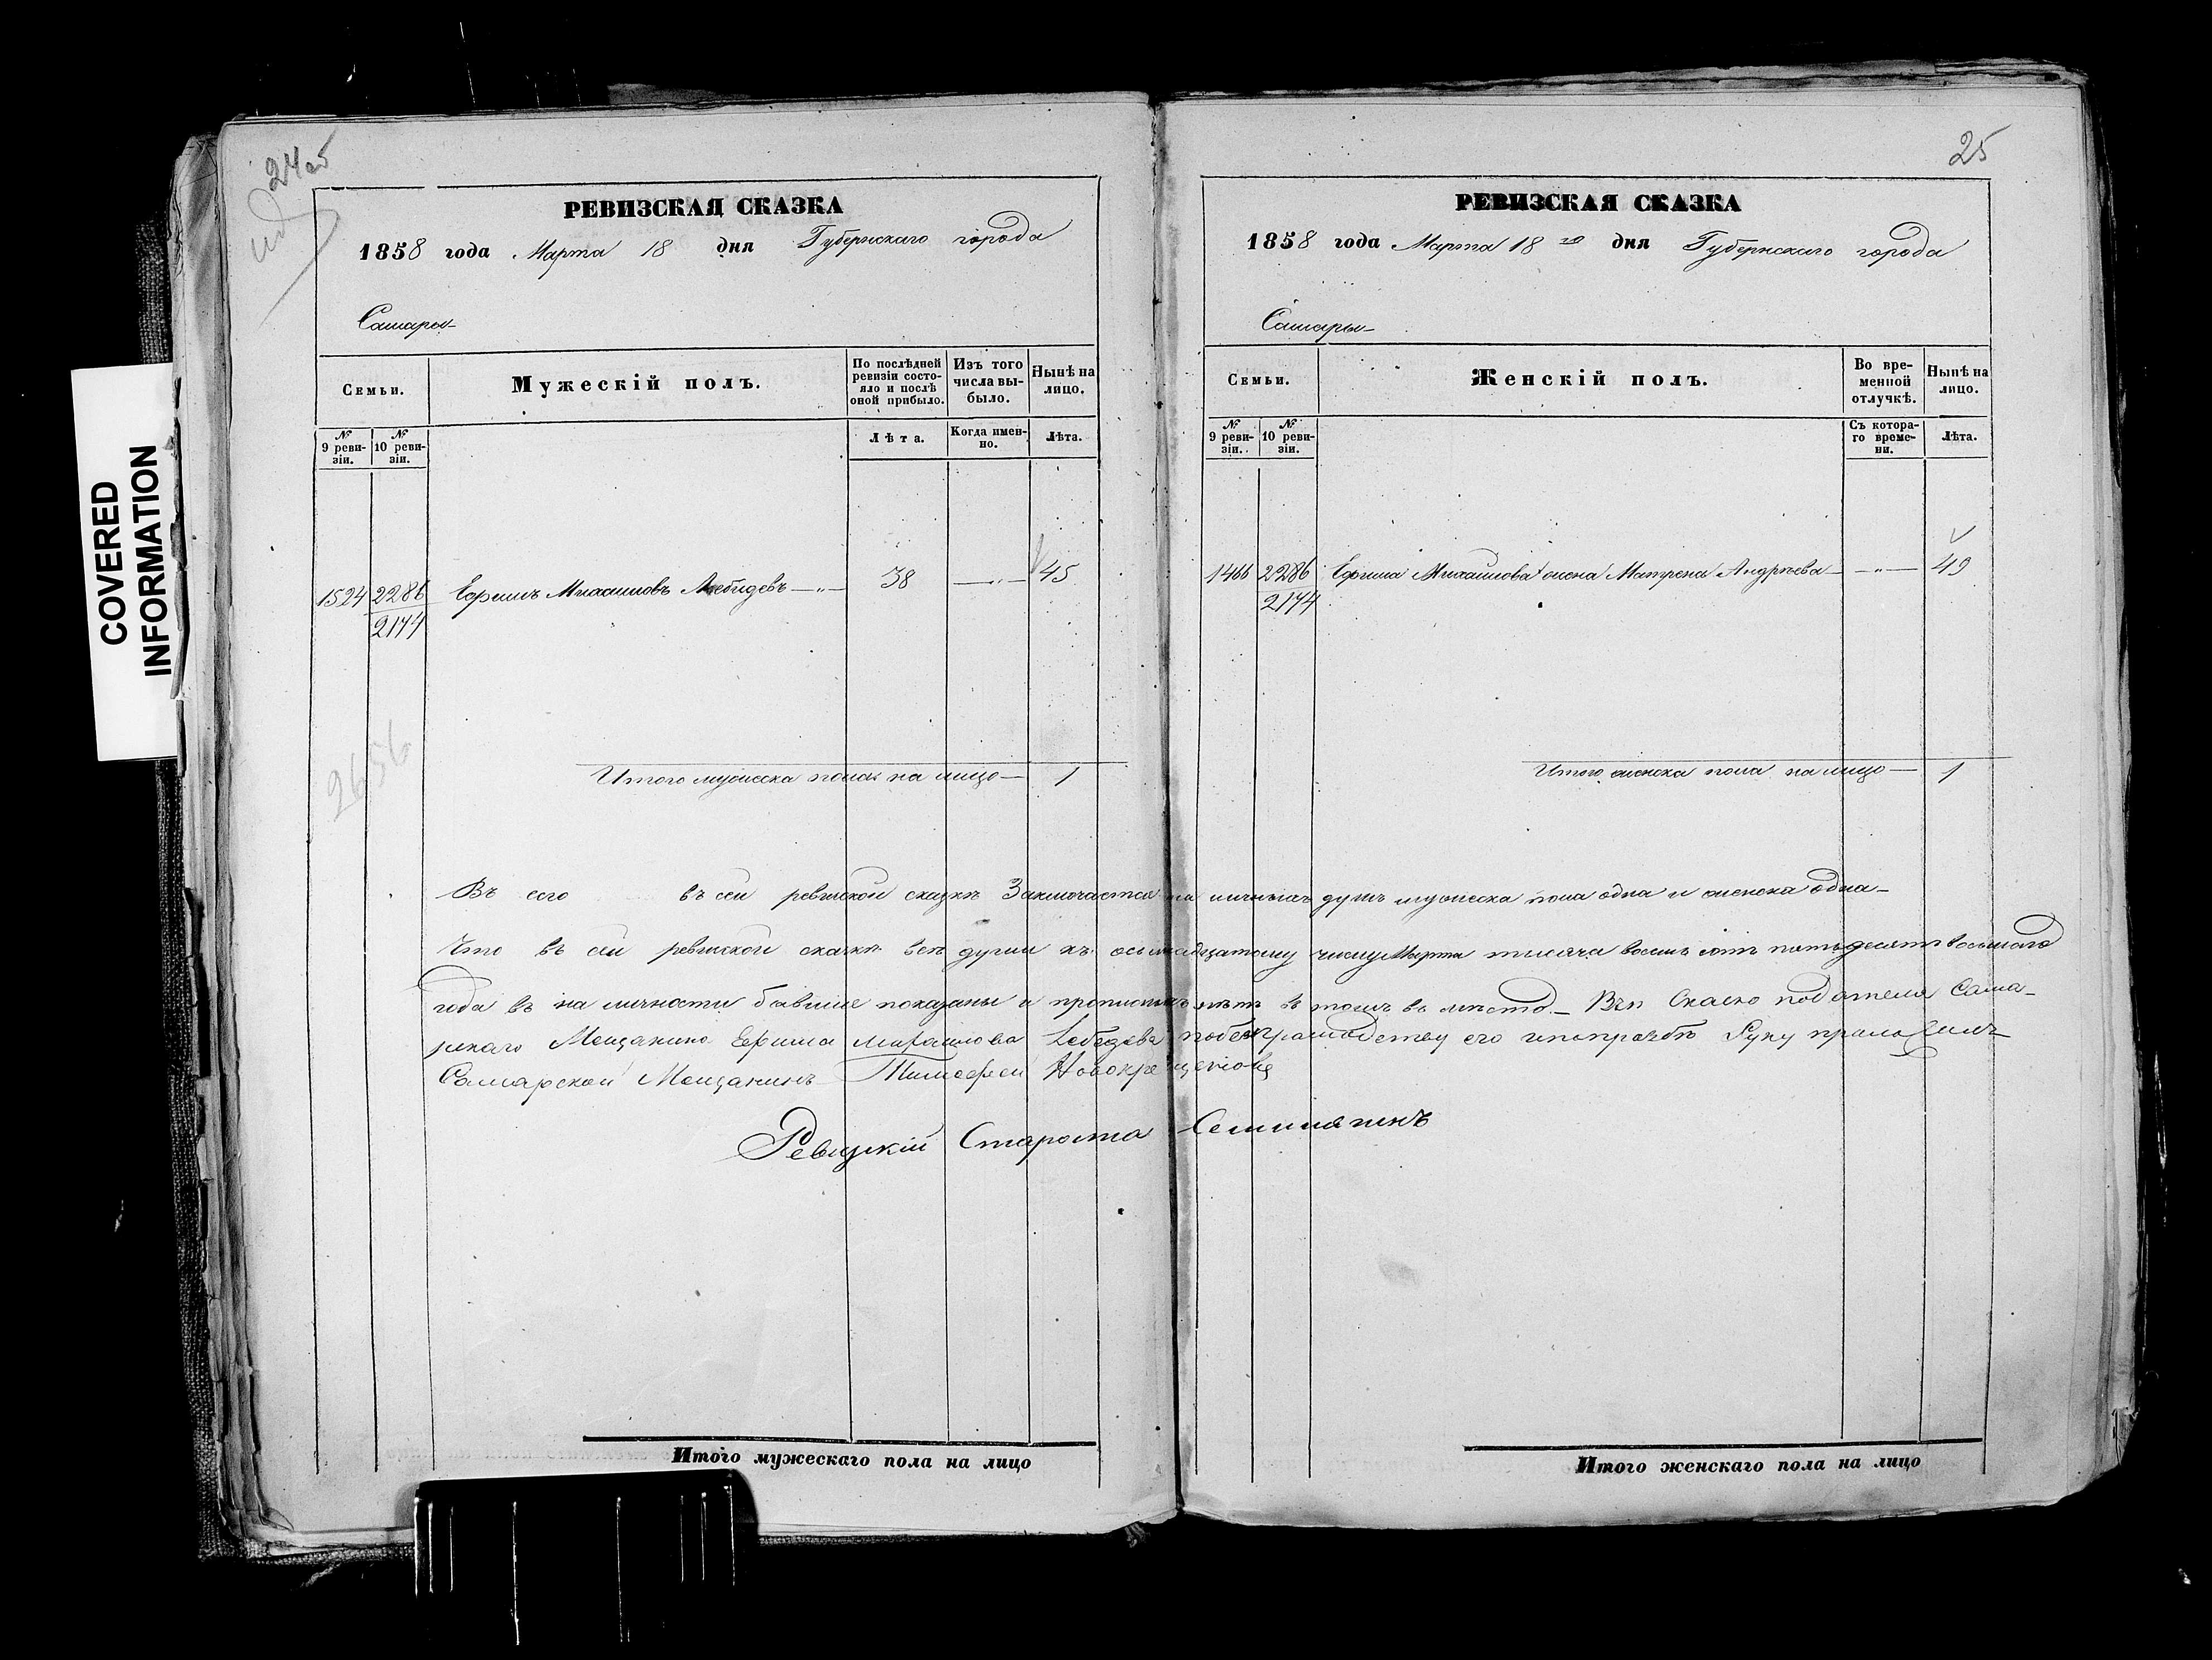 24об
25
COVERED
INFORMATION
РЕВИЗСКАЯ СКАЗКА
1858 года Марта 18 дня Губернскаго города
Самары
Семьи.
Мужескій полъ.
По послѣдней
ревизіи состо-
яло и послѣ
оной прибыло.
Изъ того
числа вы-
было.
Нынѣ на
лицо.
№
9 реви-
зіи.
№
10 реви-
зіи.
Лѣта.
Когда имен-
но.
Лѣта.
1524 2286 Ефимъ Михайловъ Лебедевъ —„— 38 —„— 45
2174
2656
Итого мужеска пола на лицо — 1
РЕВИЗСКАЯ СКАЗКА
1858 года Марта 18 го дня Губернскаго города
Самары
Семьи.
Женскій полъ.
Во вре-
менной
отлучкѣ.
Нынѣ на
лицо.
№
9 реви-
зіи.
№
10 реви-
зіи.
Съ котора-
го време-
ни.
Лѣта.
1466 2286 Ефима Михайлова жена Матрена Андрѣева — —„— 49
2174
Итого женска пола на лицо — 1
Въ сей ревизской сказкѣ Заключается на личныхъ душъ мужеска пола одна и женска одна
Что въ сей ревизской сказкѣ всѣ души къ осьмнадцатому числу Марта тысяча восемь сотъ пятьдесятъ восьмого
года въ на личности бывшие показаны и прописныхъ нѣтъ въ томъ въ мѣсто подателя Сама-
рскаго Мещанина Ефима михайлова Лебедева побезграмодству его ипопрозбѣ Руку приложилъ
Самарской Мещанинъ Тимофей Новокрещеновъ
Ревизкій Староста
Итого мужескаго пола на лицо
Итого женскаго пола на лицо